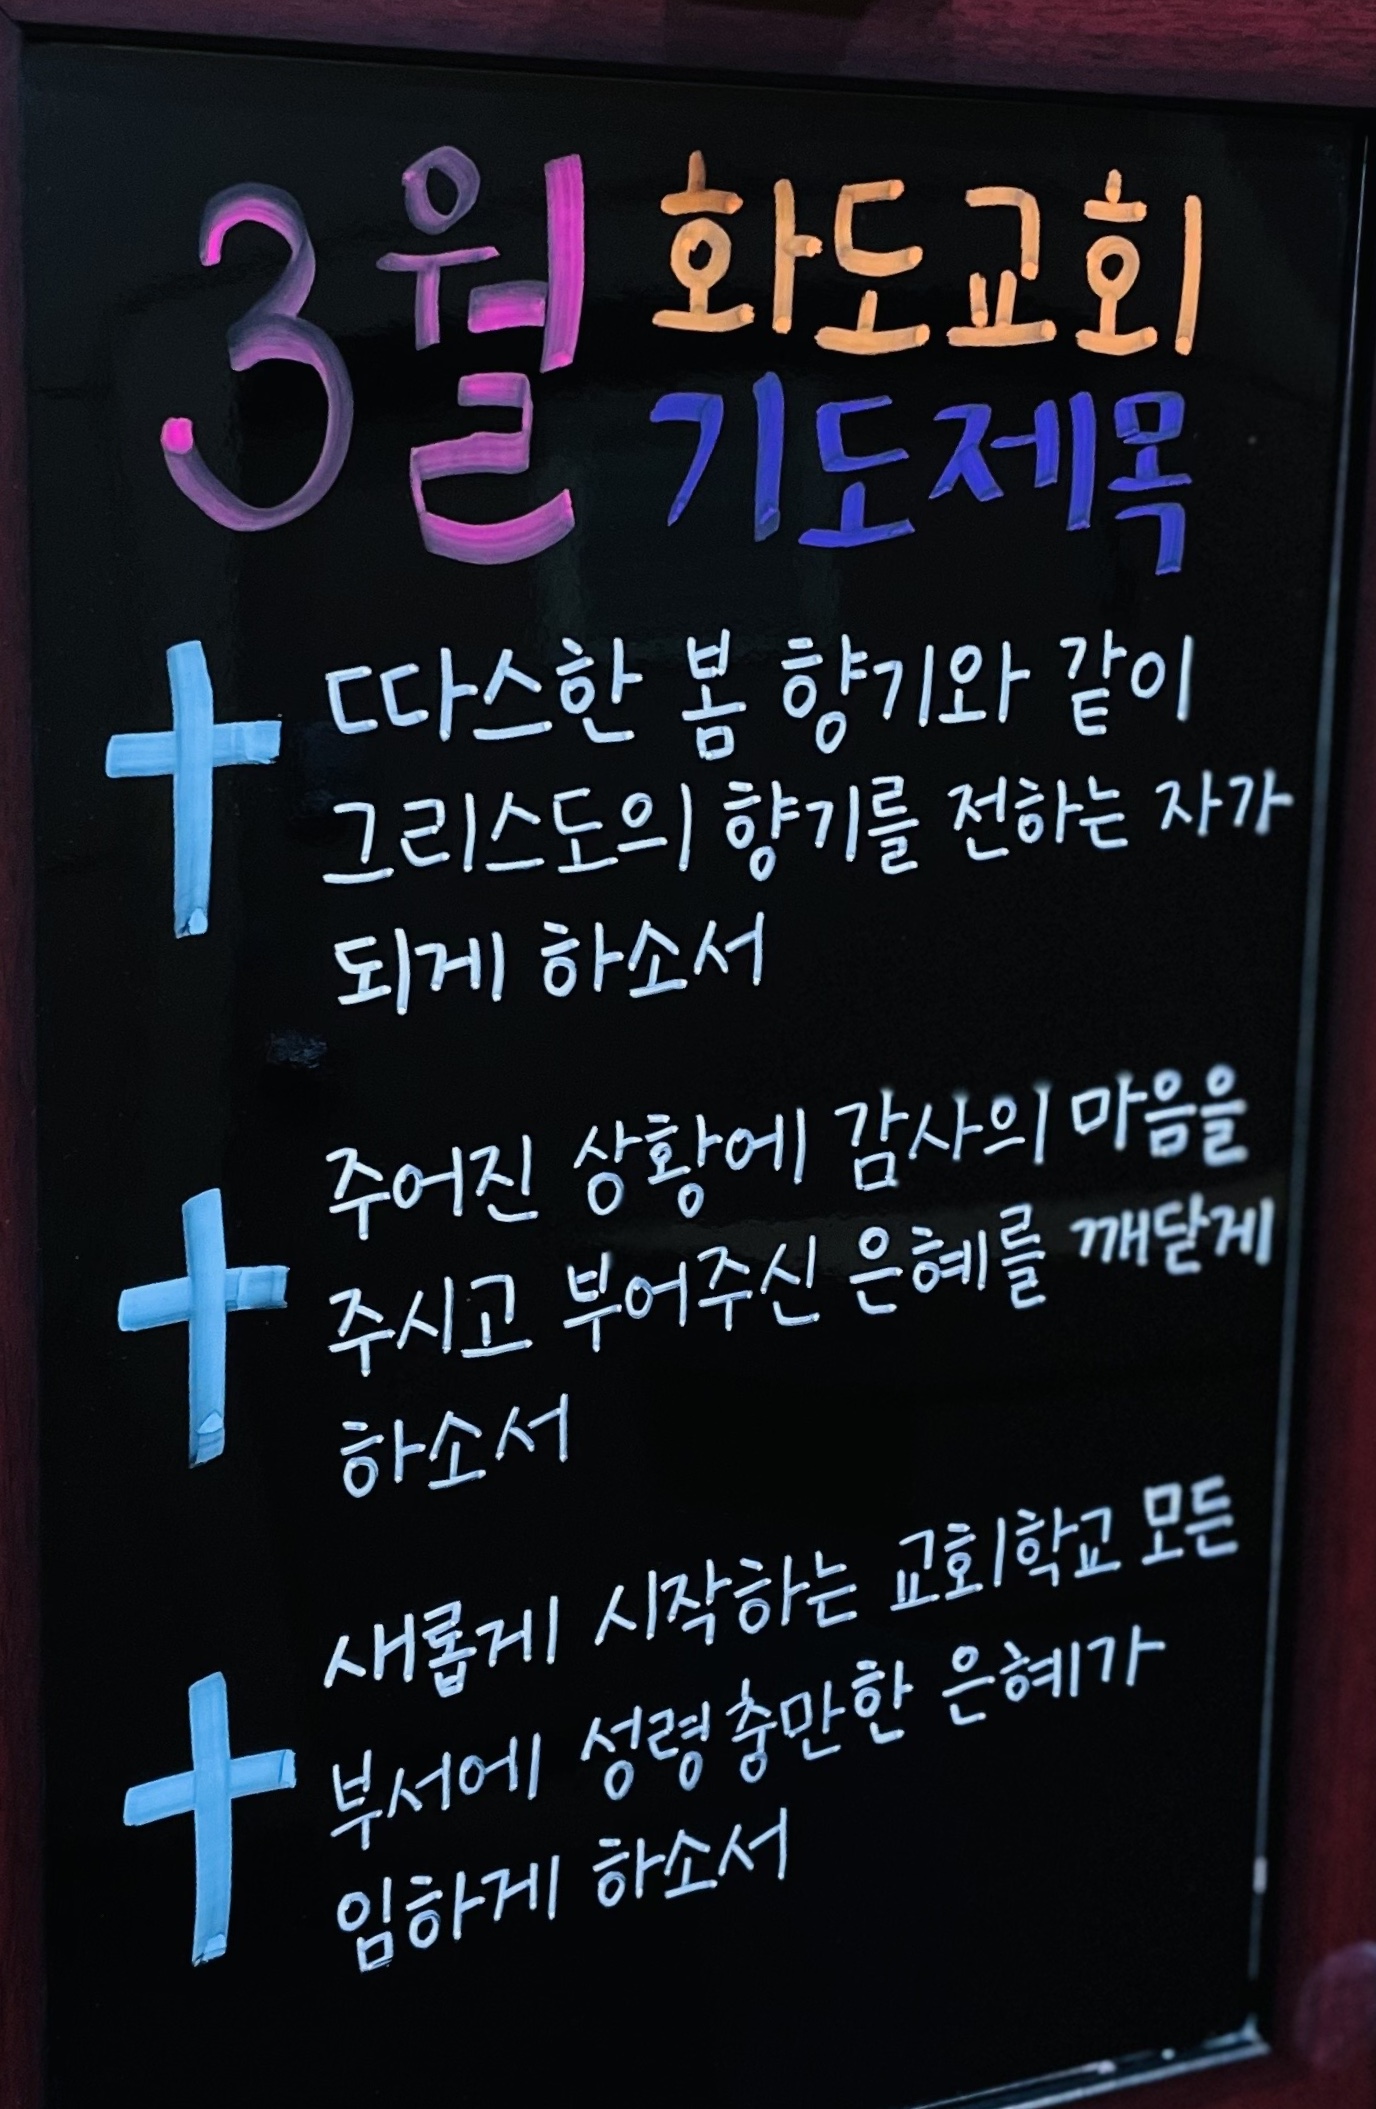 3월 화도교회
기도제목
따스한 봄 향기와 같이
그리스도의 향기를 전하는 자가
되게 하소서
주어진 상황에 감사의 마음을
주시고 부어주신 은혜를 깨닫게
하소서
새롭게 시작하는 교회학교 모든
부서에 성령충만한 은혜가
임하게 하소서